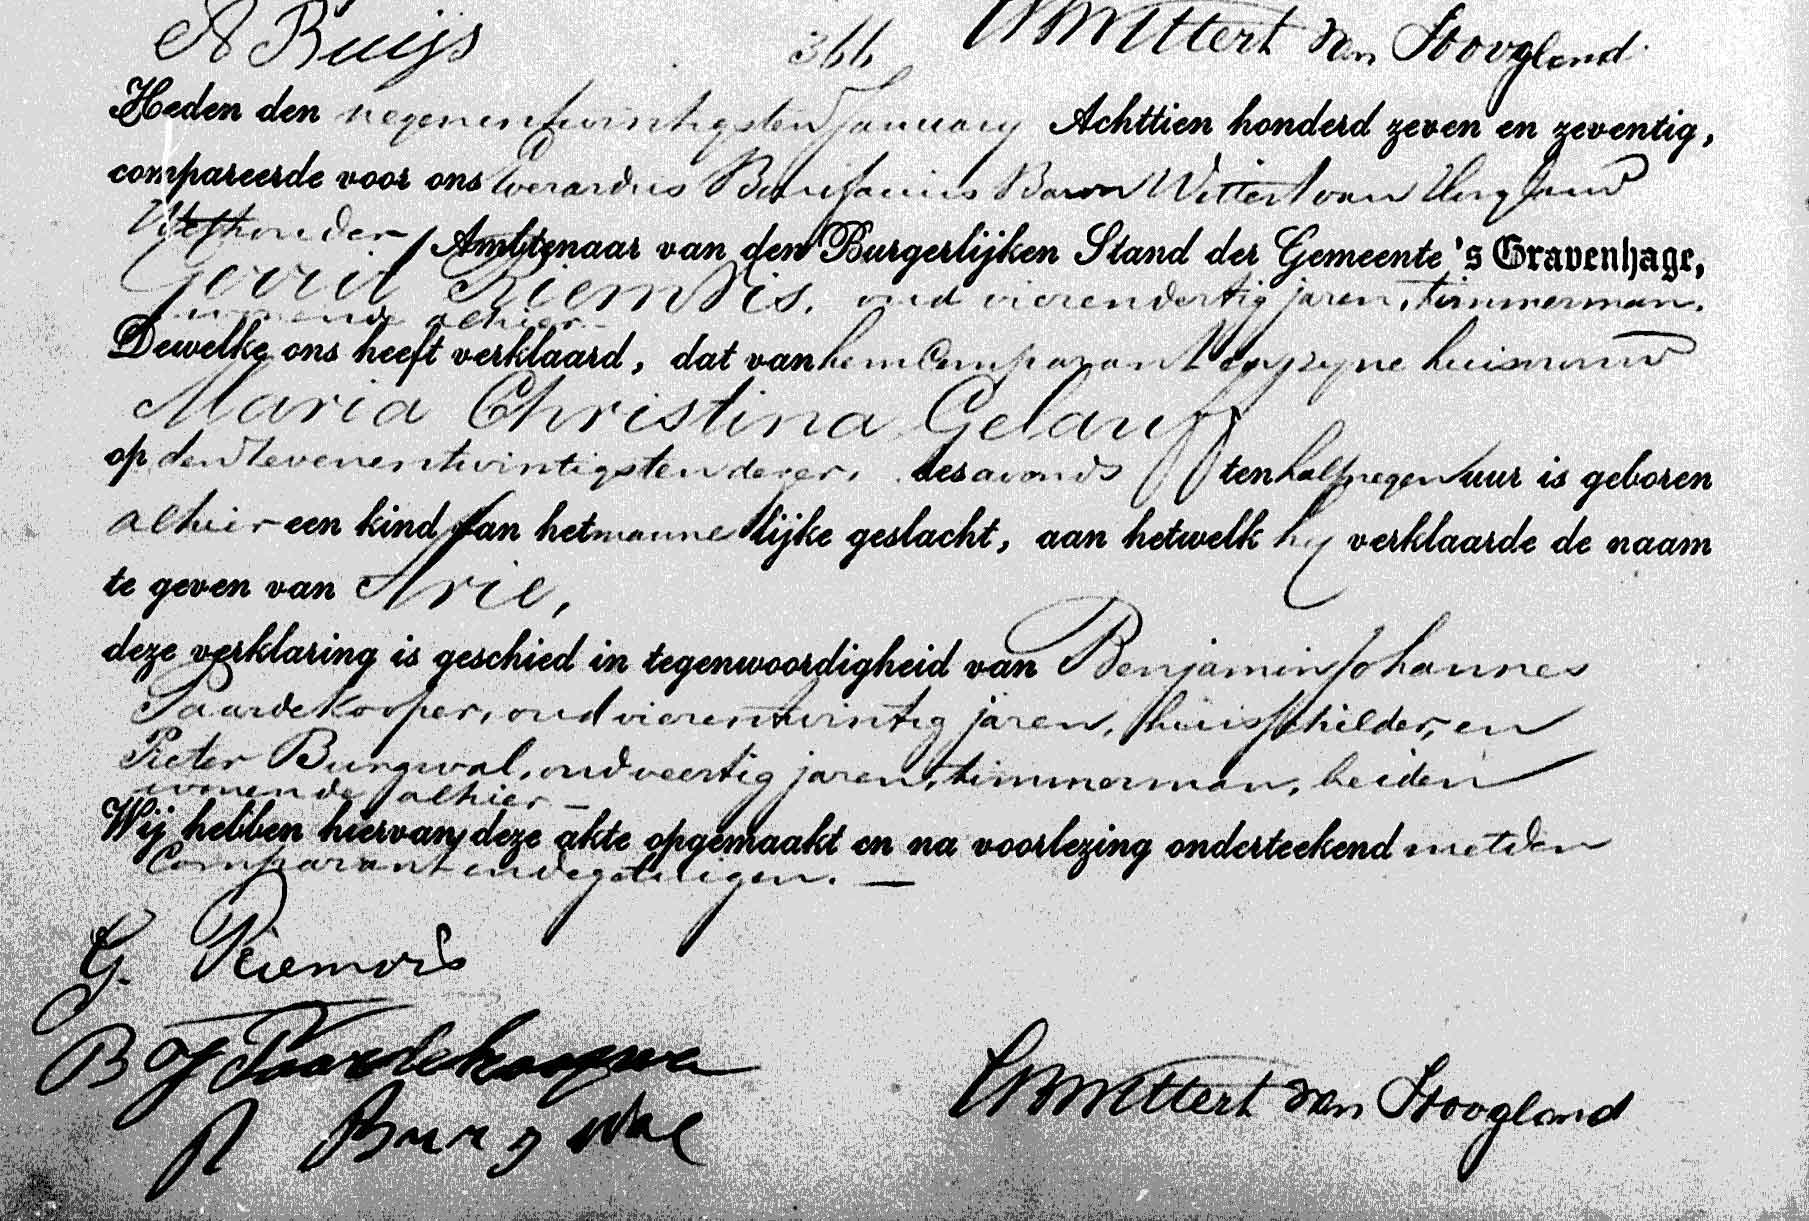 A Buijs 366 Wittert van Hoogland
Heden den negenentwintigsten January Achttien honderd zeven en zeventig,
compareerde voor ons Everardus Bonifacius Baron Wittert van Hoogland
Wethouder Ambtenaar van den Burgerlijken Stand der Gemeente 's Gravenhage,
Gerrit Riemvis, oud vierendertig jaren, timmerman,
wonende alhier –
Dewelke ons heeft verklaard, dat van hem Comparant en zyne huisvrouw
Maria Christina Gelauff
op den zevenentwintigsten dezer, des avonds ten half negen uur is geboren
alhier een kind van het mannelijke geslacht, aan hetwelk hy verklaarde de naam
te geven van Arie,
deze verklaring is geschied in tegenwoordigheid van Benjamin Johannes
Paardekooper, oud vierentwintig jaren, huisschilder, en
Pieter Burgwal, oud veertig jaren, timmerman, beiden
wonende alhier –
Wij hebben hiervan deze akte opgemaakt en na voorlezing onderteekend met den
Comparant en de getuigen. —
G. Riemvis
B J Paardekooper
P Burgwal Wittert van Hoogland